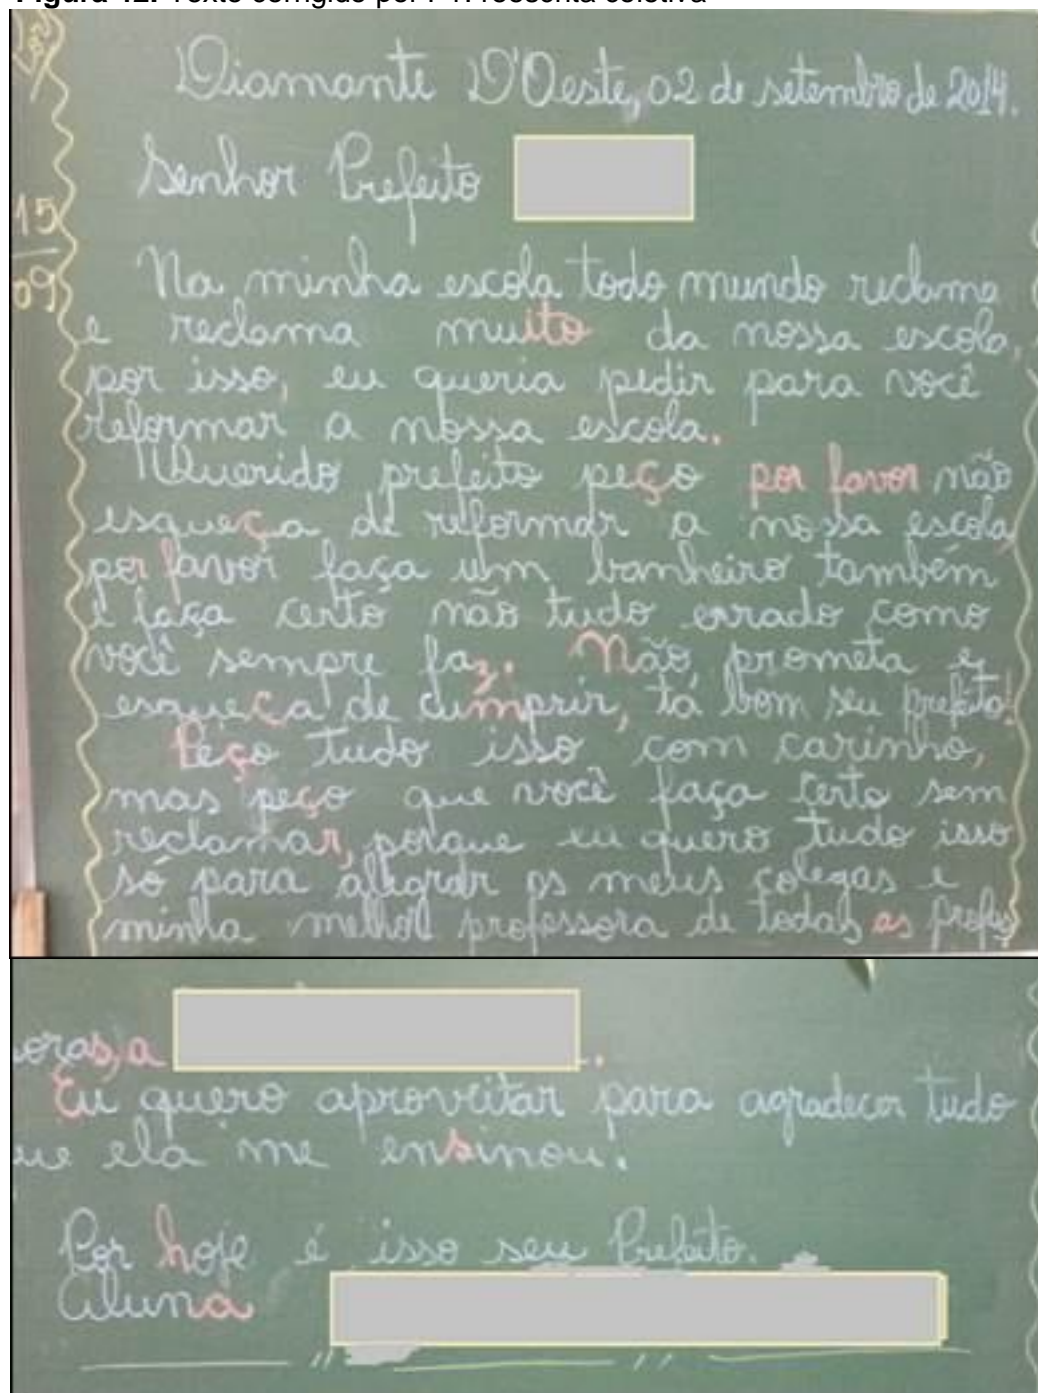 Diamante D'Oeste, 02 de setembro de 2014.
Senhor Prefeito
15
09
Na minha escola todo mundo reclama
e reclama muito da nossa escola,
por isso, eu queria pedir para você
reformar a nossa escola.
Querido prefeito peço por favor não
esqueça de reformar a nossa escola,
por favor faça um banheiro também
e faça certo não tudo errado como
você sempre faz. Não prometa e
esqueça de cumprir, tá bom seu prefeito!
Peço tudo isso com carinho,
mas peço que você faça certo sem
reclamar, porque eu quero tudo isso
só para alegrar os meus colegas e
minha melhor professora de todas as profes
oras, a .
Eu quero aproveitar para agradecer tudo
ue ela me ensinou.
Por hoje é isso seu Prefeito.
Aluna